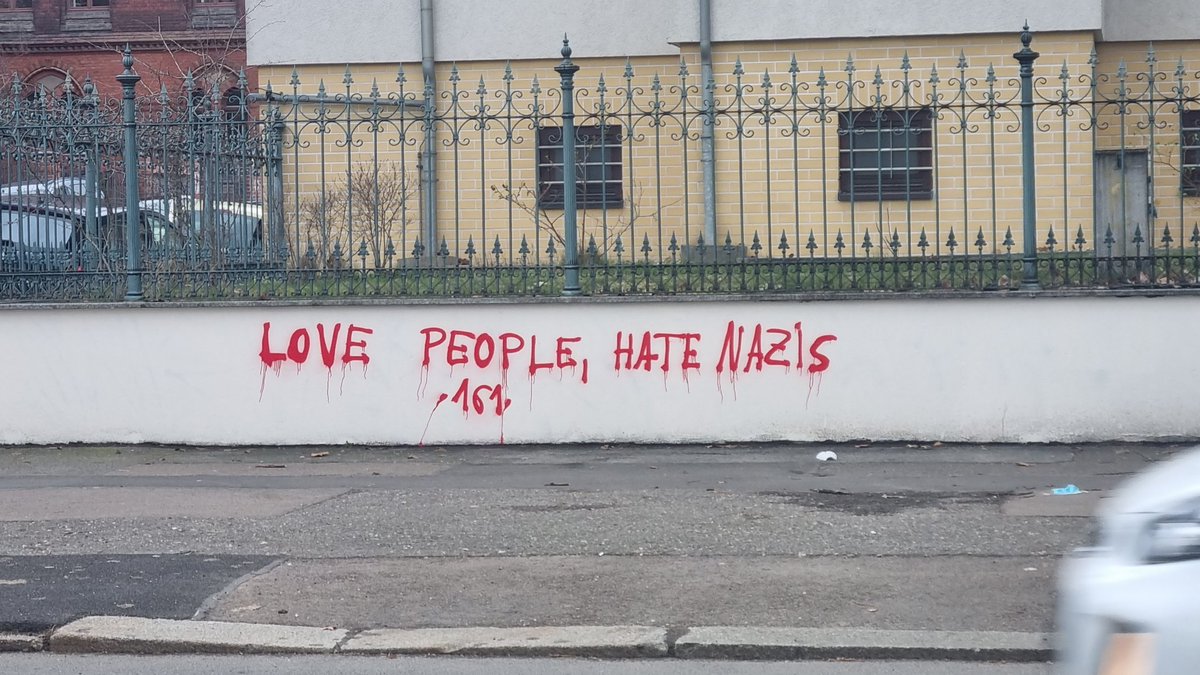 LOVE PEOPLE, HATE NAZIS
.161.